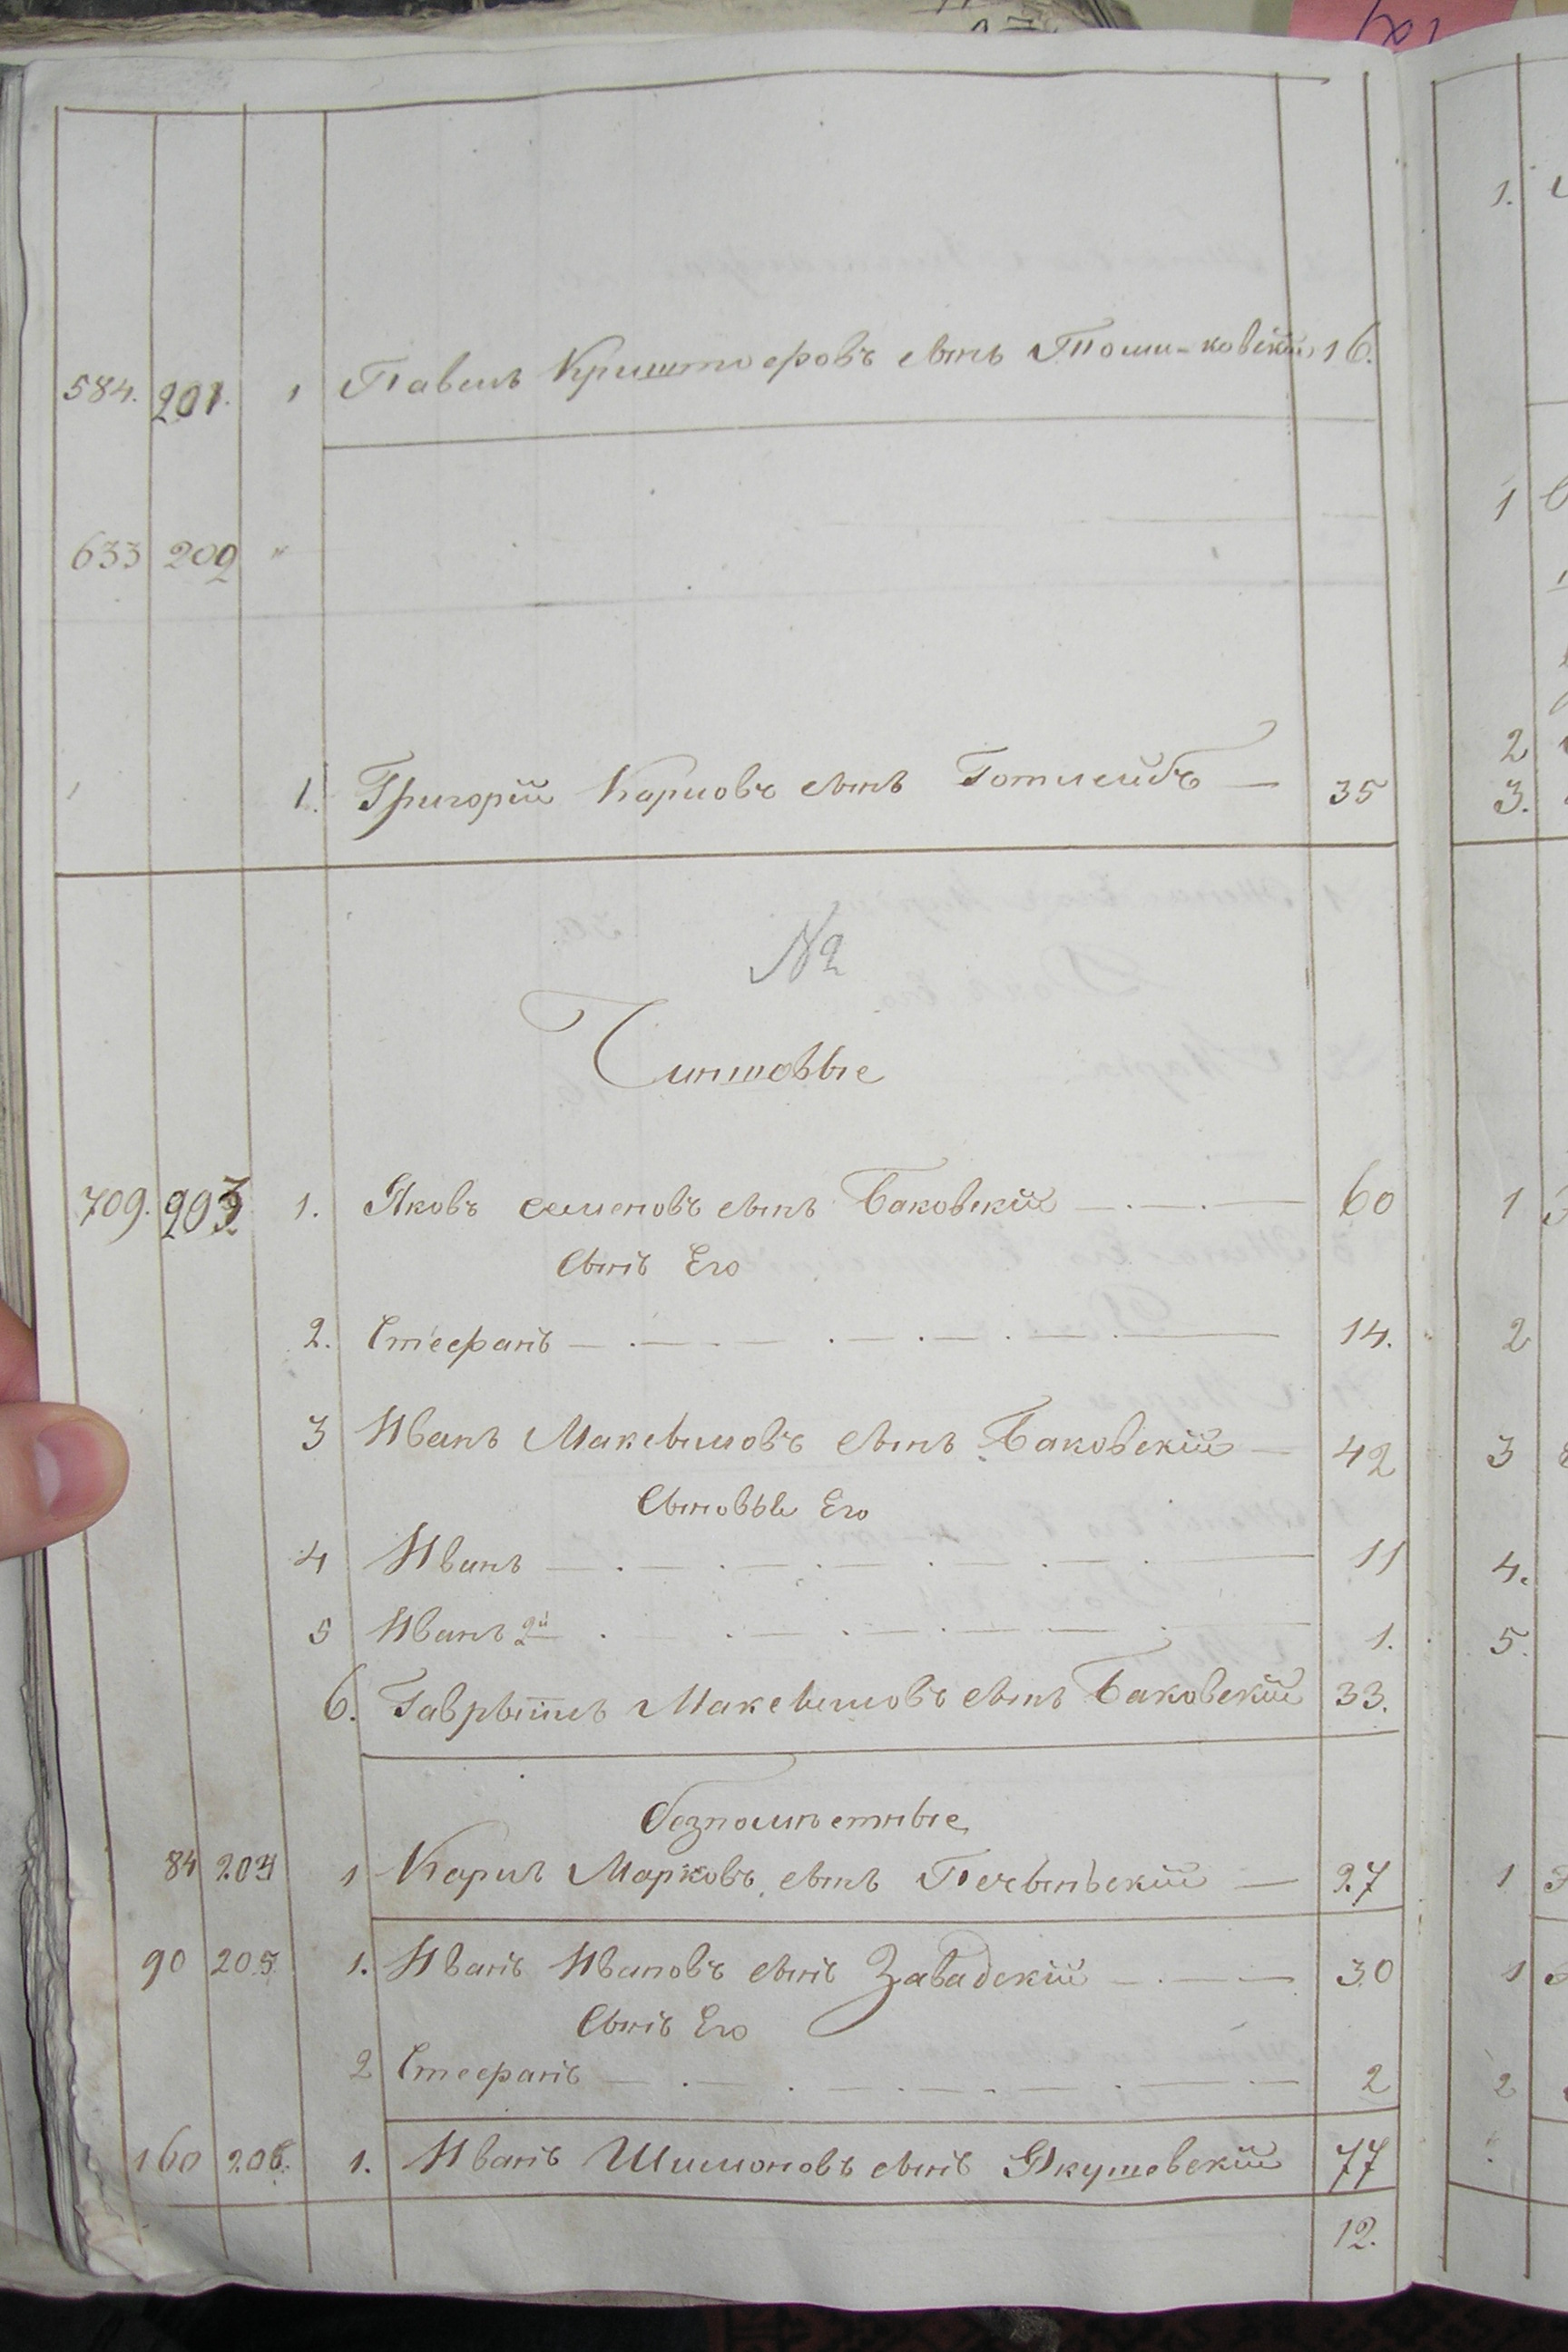 584. 201. 1 Павелъ Криштофовъ сынъ Томи-ковскій 16.
633 202 "
1. Григорій Карловъ сынъ Готлейбъ — 35
№ 2
Чиншовые
709. 203 1. Яковъ Семеновъ сынъ Баковскій — 60
Сынъ Его
2. Стефанъ — 14.
3 Иванъ Максымовъ сынъ Баковскій — 42
Сыновье Его
4 Иванъ — 11
5 Иванъ 2й — 1.
6. Гаврыилъ Максымовъ сынъ Баковскій 33.
безпоместные
84 204 1 Карлъ Марковъ сынъ Печынскій — 27
90 205 1. Иванъ Ивановъ сынъ Завадскій — 30
Сынъ Его
2 Стефанъ — 2
160 206. 1. Иванъ Шимоновъ сынъ Якушевскій 77
12.
1.
1
2
3.
1
2
3
4.
5.
1
1
2